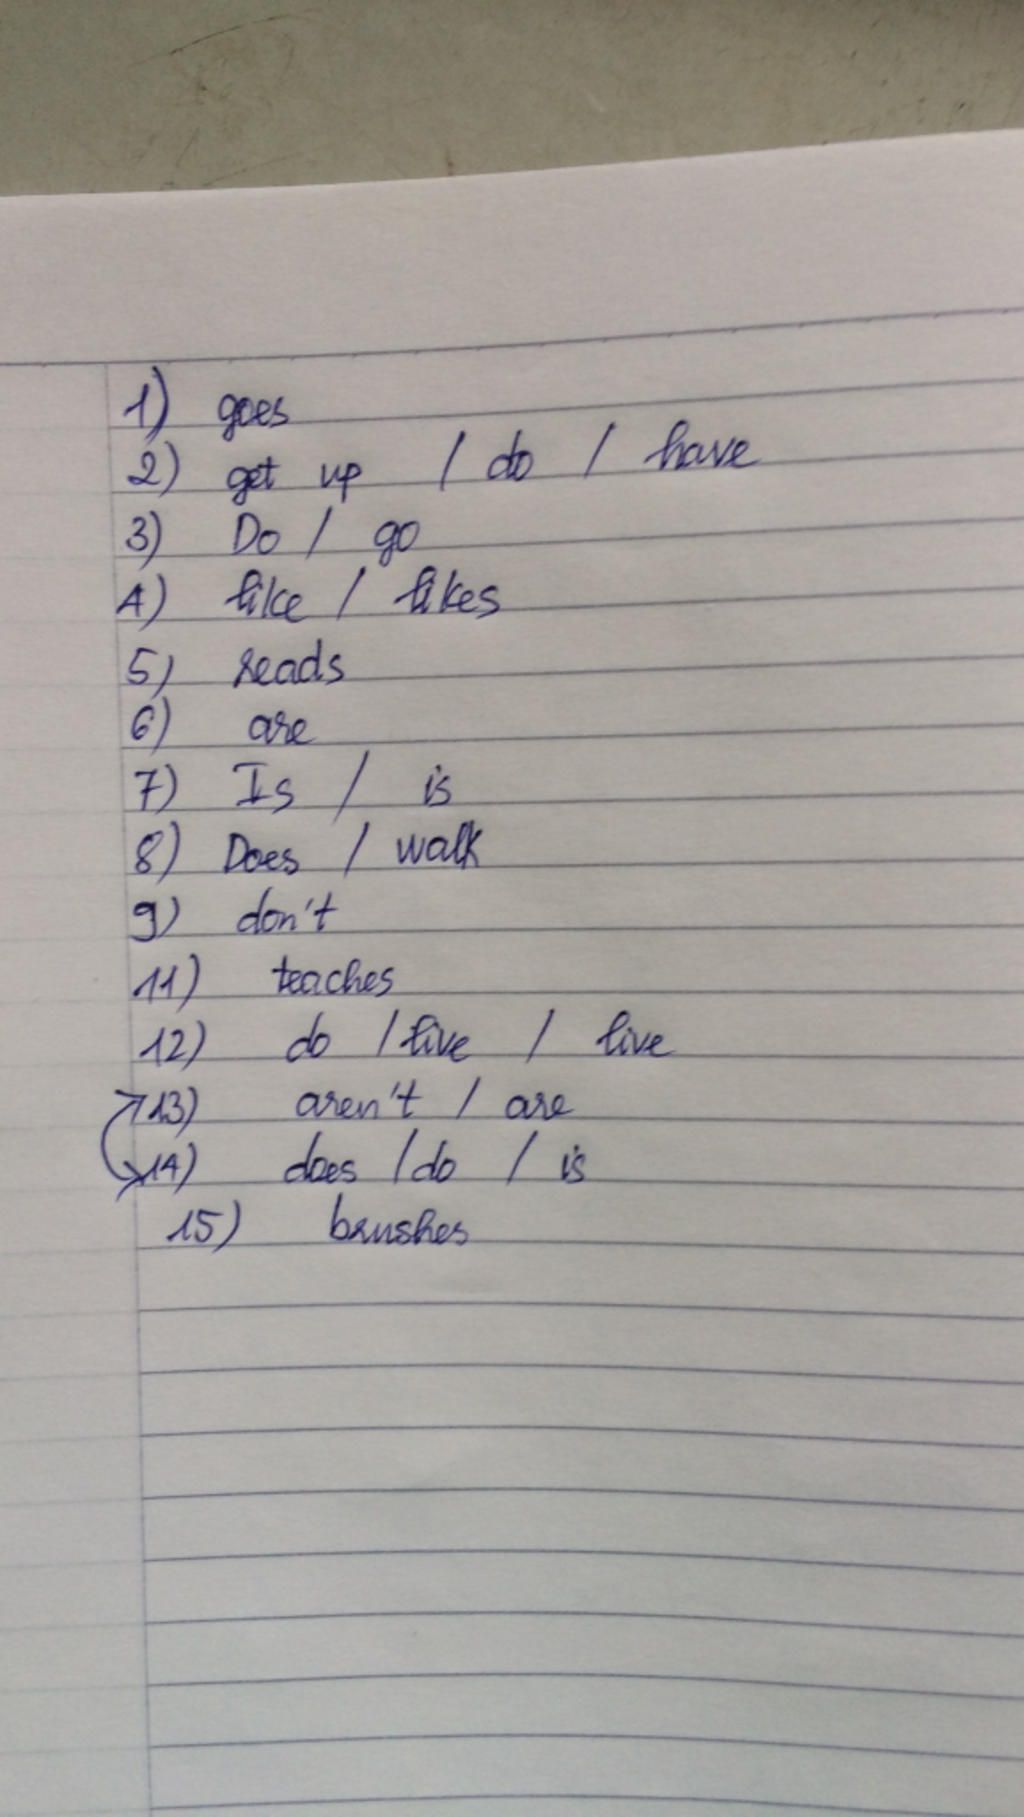 1) goes
2) get up / do / have
3) Do / go
4) like / likes
5) reads
6) are
7) Is / is
8) Does / walk
9) don't
11) teaches
12) do / live / live
13) aren't / are
14) does / do / is
15) brushes